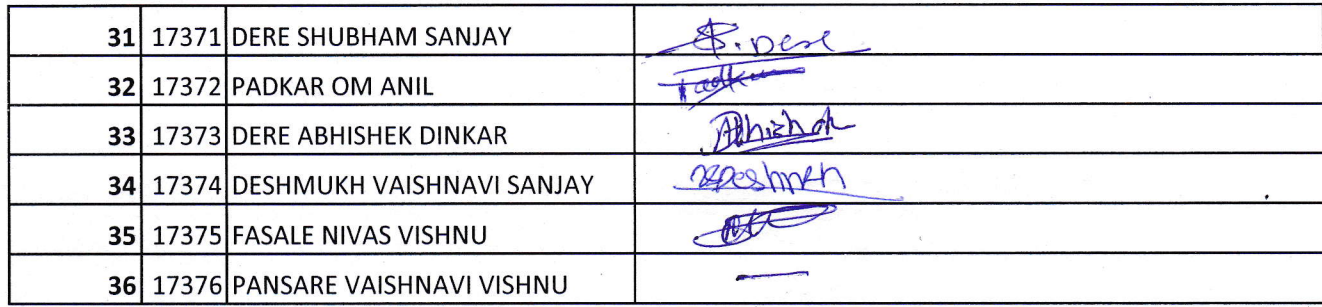 31 17371 DERE SHUBHAM SANJAY S. Dere
32 17372 PADKAR OM ANIL
33 17373 DERE ABHISHEK DINKAR Abhishek
34 17374 DESHMUKH VAISHNAVI SANJAY
35 17375 FASALE NIVAS VISHNU
36 17376 PANSARE VAISHNAVI VISHNU —